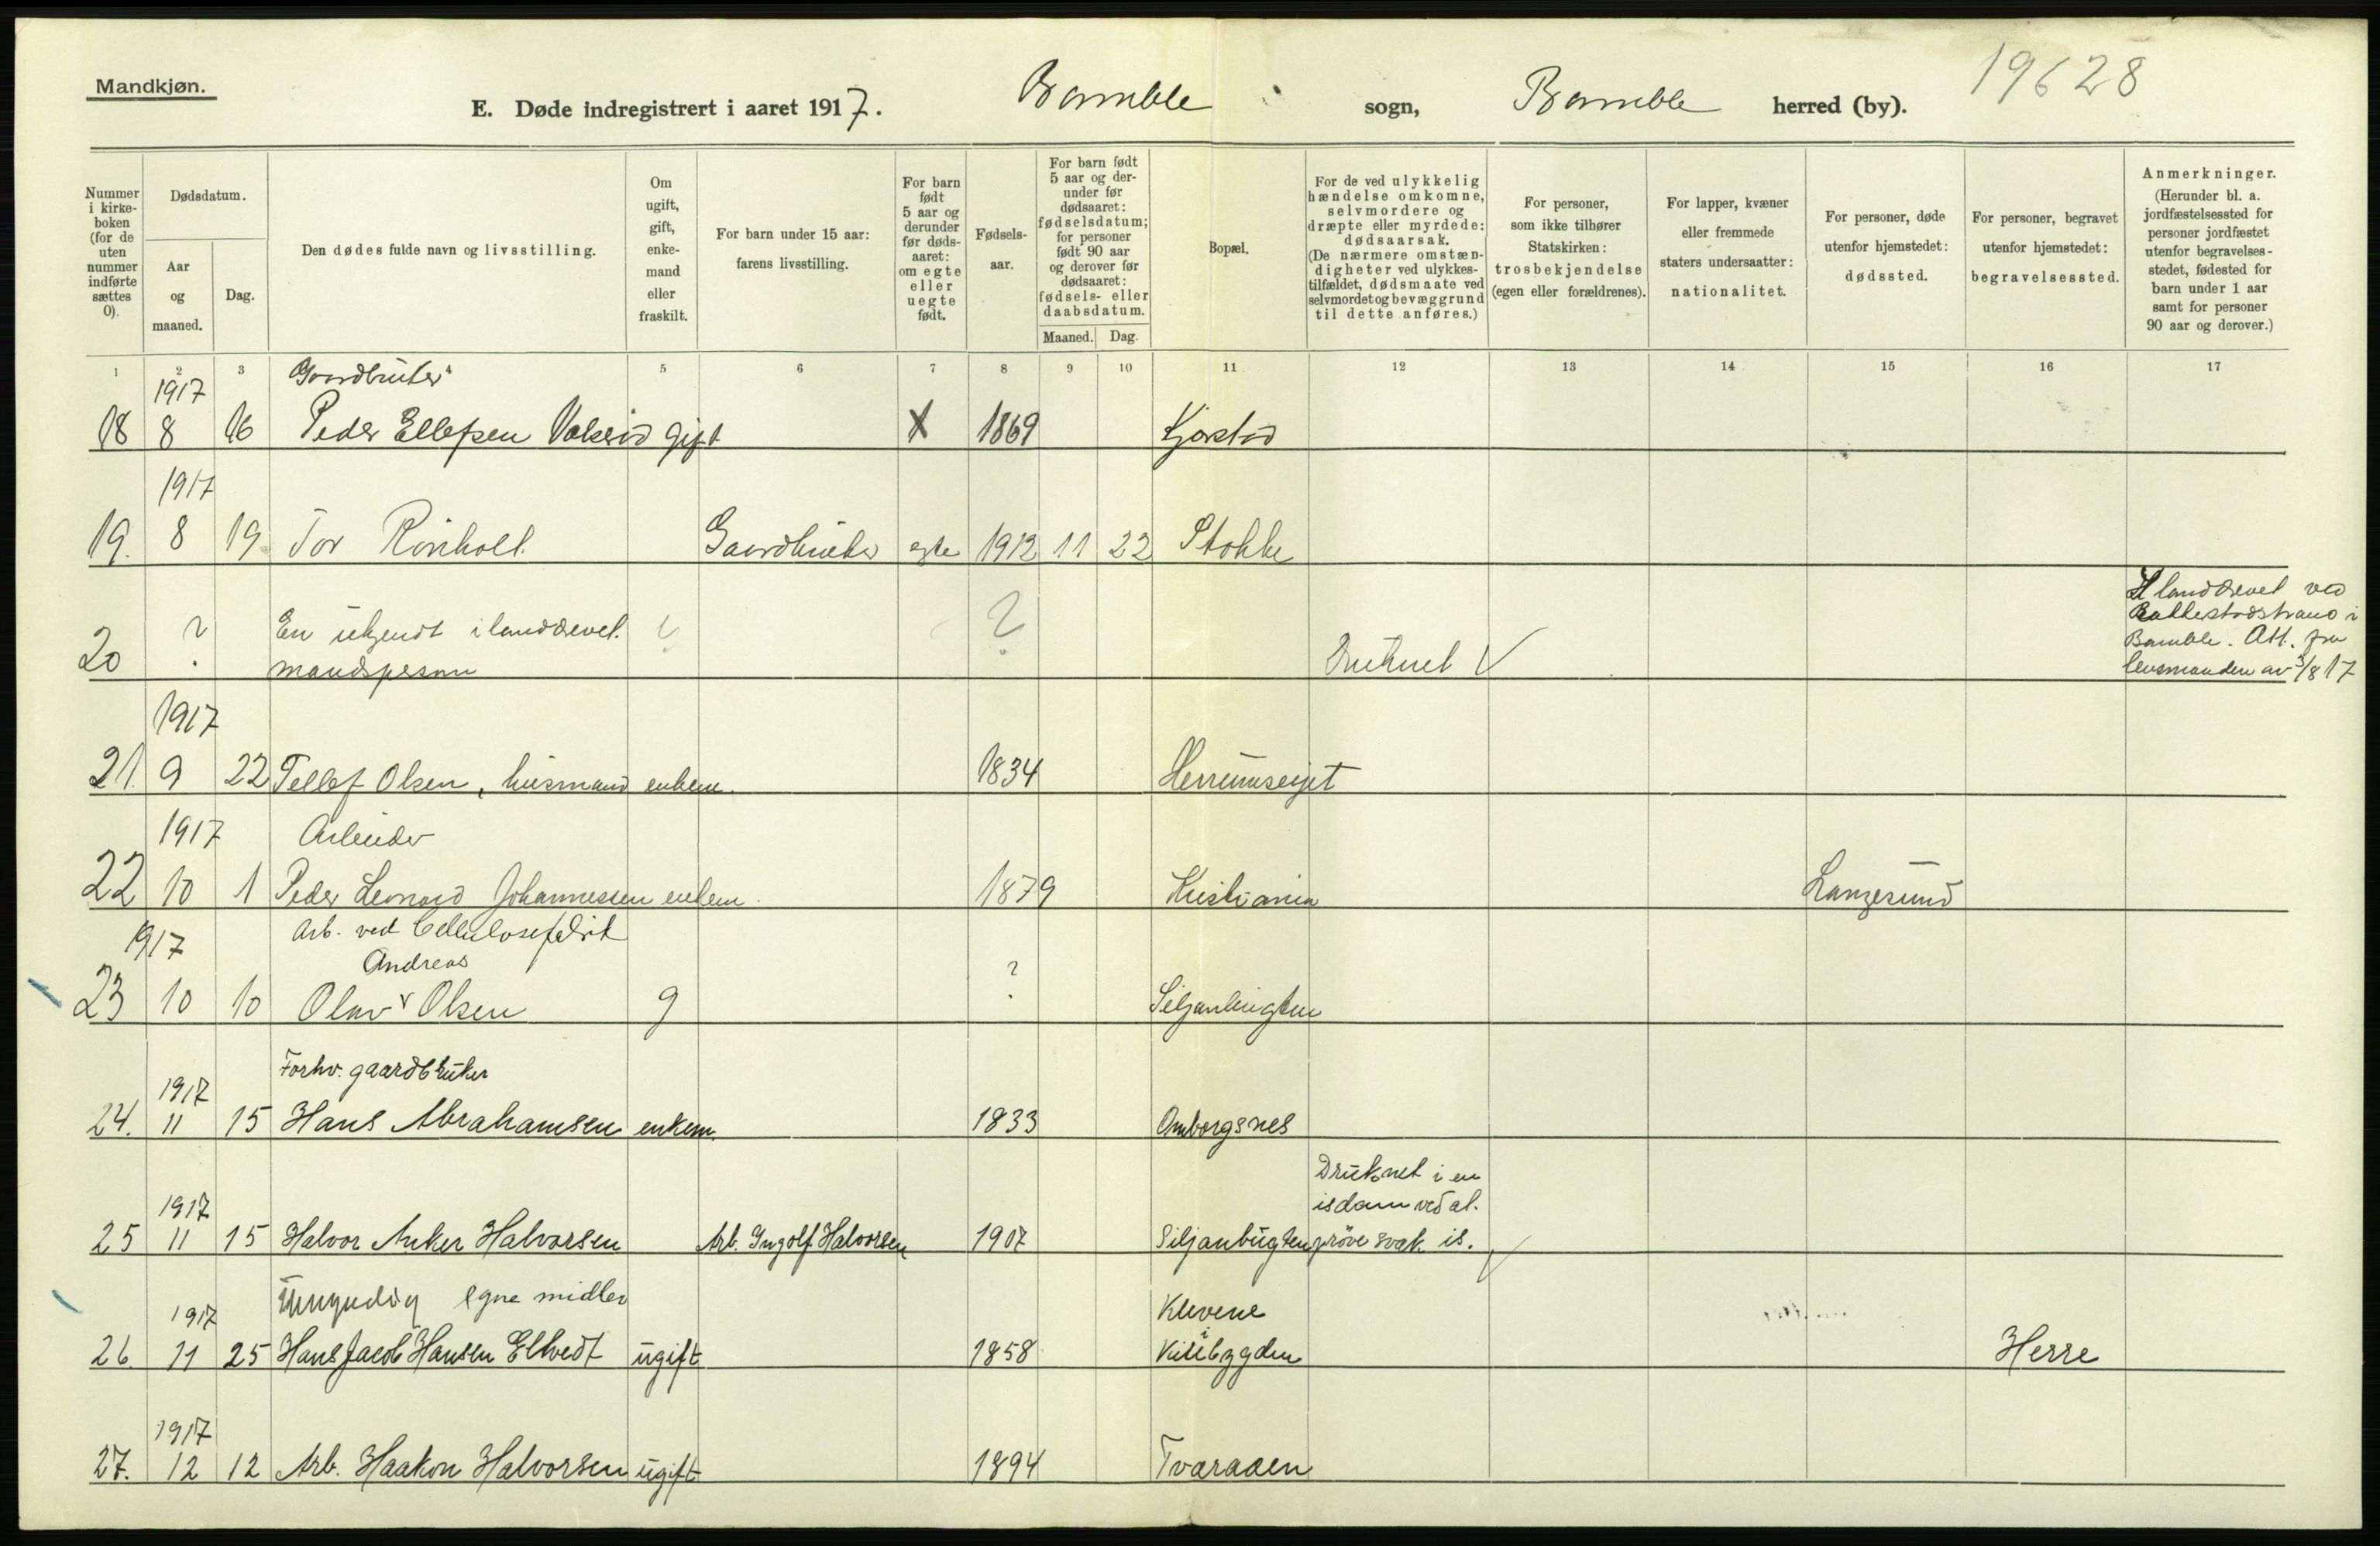 Mandkjøn.
19628
E. Døde indregistrert i aaret 1917. Bamble sogn, Bamble herred (by).
Nummer i kirke- boken (for de uten nummer indførte sættes 0).
Dødsdatum.
Aar og maaned.
Dag.
Den dødes fulde navn og livsstilling.
Om ugift, gift, enke- mand eller fraskilt.
For barn under 15 aar: farens livsstilling.
For barn født 5 aar og derunder før døds- aaret: om egte eller uegte født.
Fødsels- aar.
For barn født 5 aar og der- under før dødsaaret: fødselsdatum; for personer født 90 aar og derover før dødsaaret: fødsels- eller daabsdatum.
Maaned. Dag.
Bopæl.
For de ved ulykkelig hændelse omkomne, selvmordere og dræpte eller myrdede: dødsaarsak. (De nærmere omstæn- digheter ved ulykkes- tilfældet, dødsmaate ved selvmordet og bevæggrund til dette anføres.)
For personer, som ikke tilhører Statskirken: trosbekjendelse (egen eller forældrenes).
For lapper, kvæner eller fremmede staters undersaatter: nationalitet.
For personer, døde utenfor hjemstedet: dødssted.
For personer, begravet utenfor hjemstedet: begravelsessted.
Anmerkninger. (Herunder bl. a. jordfæstelsessted for personer jordfæstet utenfor begravelses- stedet, fødested for barn under 1 aar samt for personer 90 aar og derover.)
1 2 3 4 5 6 7 8 9 10 11 12 13 14 15 16 17
1917 Gaardbruker
18 8 16 Peder Ellefsen Valserød gift X 1869 Kjørstad
1917
19. 8 19 Tor Rønholt. Gaardbruker egte 1912 11 22 Stokke
Ilanddrevet ved
Bakkestadstrand i
? En ukjendt ilanddrevet ? ? Bamble. Att. fra
20 mandsperson Druknet V lensmanden av 3/8 17
1917
21. 9 22 Tellef Olsen, husmand enkem. 1834 Herrumseiet
1917 Arbeider
22 10 1 Peder Leonard Johannessen enkem. 1879 Kristiania Langesund
Arb. ved Cellulosefabrik
1917 Andreas
23 10 10 Olav v Olsen g ? Siljanbugten
Forhv. gaardbruker
1917
24. 11 15 Hans Abrahamsen enkem. 1833 Omborgsnes
Druknet i en
1917 isdam ved at
25 11 15 Halvor Anker Halvorsen Arb. Ingolf Halvorsen 1907 Siljanbugten prøve svak is.
Umyndig egne midler Klevene
1917 i
26. 11 25 Hans Jacob Hansen Elkvedt ugift 1858 Kilebygden Herre
1917
27. 12 12 Arb. Haakon Halvorsen ugift 1894 Tvaraaen